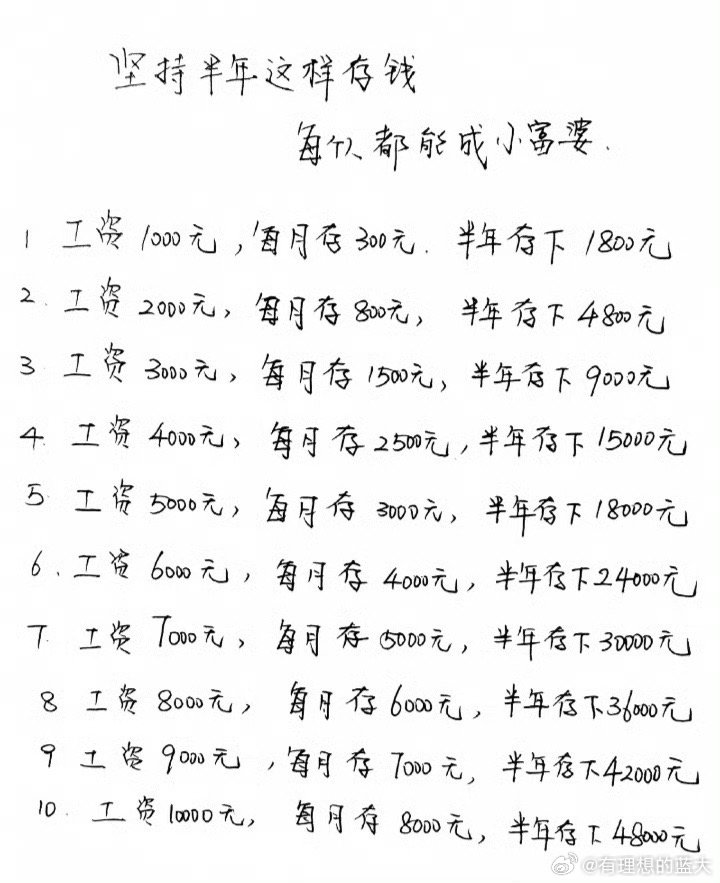 坚持半年这样存钱
每个人都能成小富婆.
1 工资1000元,每月存300元. 半年存下1800元
2. 工资2000元, 每月存800元, 半年存下4800元
3. 工资3000元, 每月存1500元, 半年存下9000元
4. 工资4000元, 每月存2500元, 半年存下15000元
5 工资5000元, 每月存3000元, 半年存下18000元
6. 工资6000元, 每月存4000元, 半年存下24000元
7. 工资7000元, 每月存5000元, 半年存下30000元
8 工资8000元, 每月存6000元, 半年存下36000元
9 工资9000元,每月存7000元, 半年存下42000元
10. 工资10000元, 每月存8000元, 半年存下48000元
@有理想的蓝天